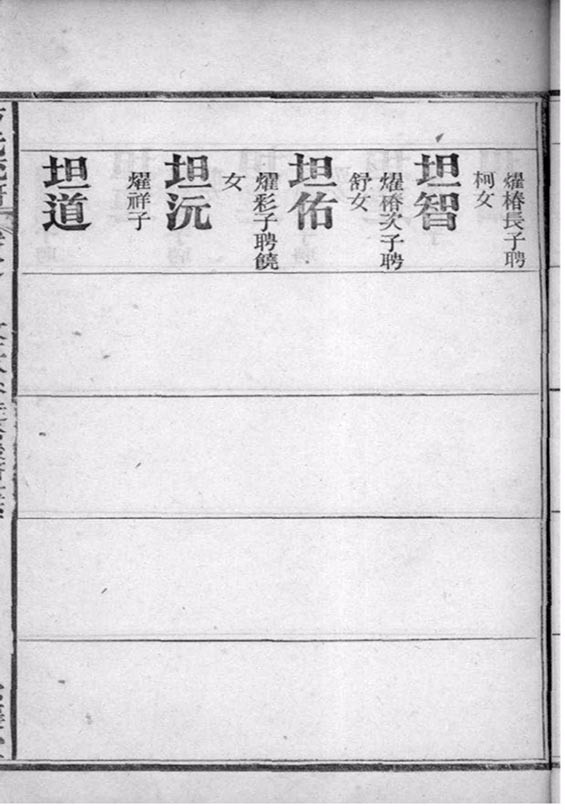 燿椿長子聘
柯女
坦智
燿椿次子聘
舒女
坦佑
燿彩子聘饒
女
坦沅
燿祥子
坦道